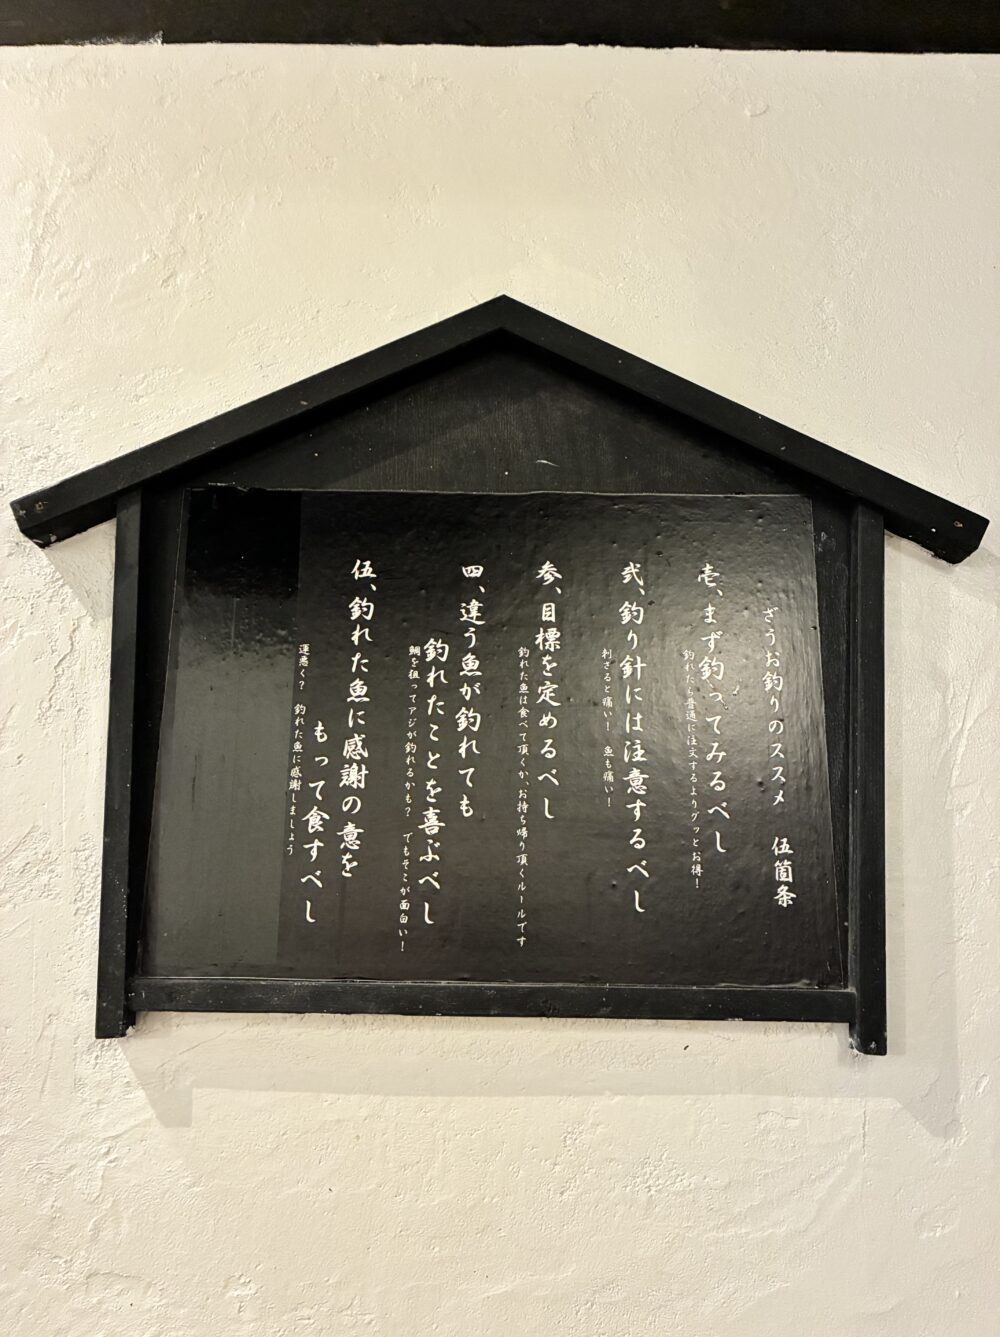 ざうお釣りのススメ 伍箇条
壱、まず釣ってみるべし
釣れたら普通に注文するよりグッとお得！
弐、釣り針には注意するべし
刺さると痛い！ 魚も痛い！
参、目標を定めるべし
釣れた魚は食べて頂くか、お持ち帰り頂くルールです
四、違う魚が釣れても
釣れたことを喜ぶべし
鯛を狙ってアジが釣れるかも？ でもそこが面白い！
伍、釣れた魚に感謝の意を
もって食すべし
運悪く？ 釣れた魚に感謝しましょう